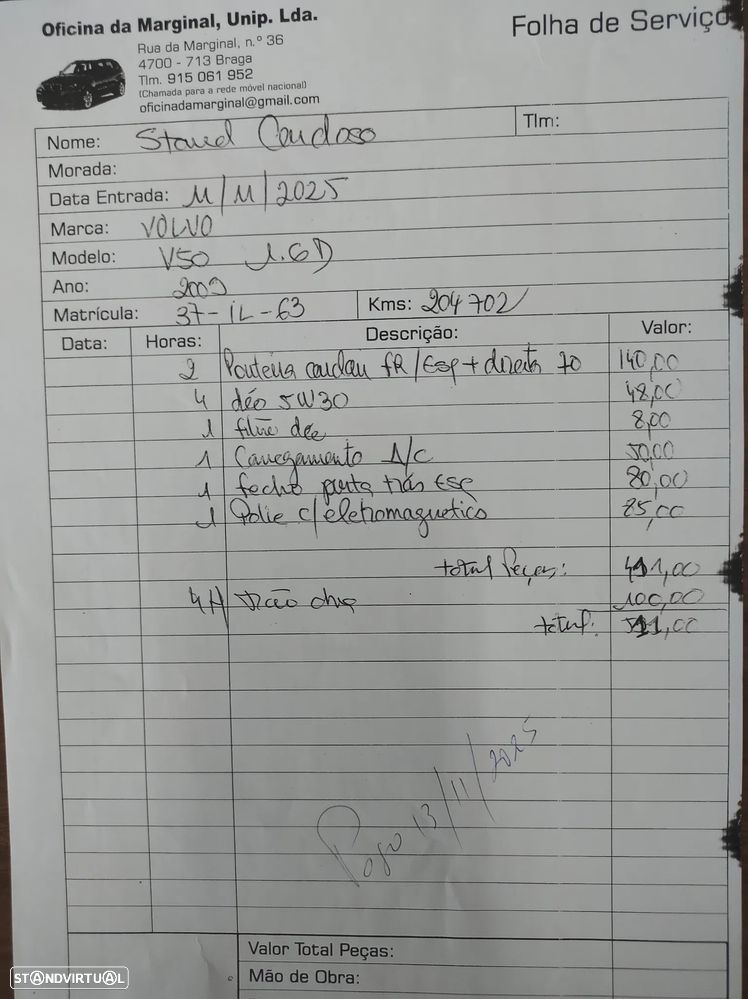 Oficina da Marginal, Unip. Lda.
Folha de Serviço
Rua da Marginal, n.º 36
4700 - 713 Braga
Tlm. 915 061 952
(Chamada para a rede móvel nacional)
oficinadamarginal@gmail.com
Nome: Stand Cardoso Tlm:
Morada:
Data Entrada: 11/11/2025
Marca: VOLVO
Modelo: V50 1.6D
Ano: 2009
Matrícula: 37-IL-63 Kms: 204 702
Data: Horas: Descrição: Valor:
2 FR/ESQ + direita 140,00
4 óleo 5W30 48,00
1 filtro óleo 8,00
1 Carregamento A/C 50,00
1 fecho porta trás ESQ 80,00
1 Polie c/ eletromagnetico 85,00
total Peças: 411,00
4H Mão obra 100,00
total: 511,00
Pago 13/11/2025
Valor Total Peças:
Mão de Obra:
STANDVIRTUAL